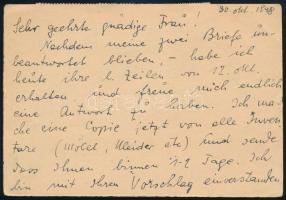 30. okt. 1948
Sehr geehrte gnädige Frau!
Nachdem meine zwei Briefe un-
beantwortet blieben, - habe ich
heute ihre l. Zeilen, vom 12. okt.
erhalten und freue mich endlich
eine Antwort zu haben. Ich ma-
che eine Copie jetzt von alle Inven-
tare (Möbel, Kleider etc) und sende
dass Ihnen binnen 1-2 Tage. Ich
bin mit Ihren Vorschlag einverstanden